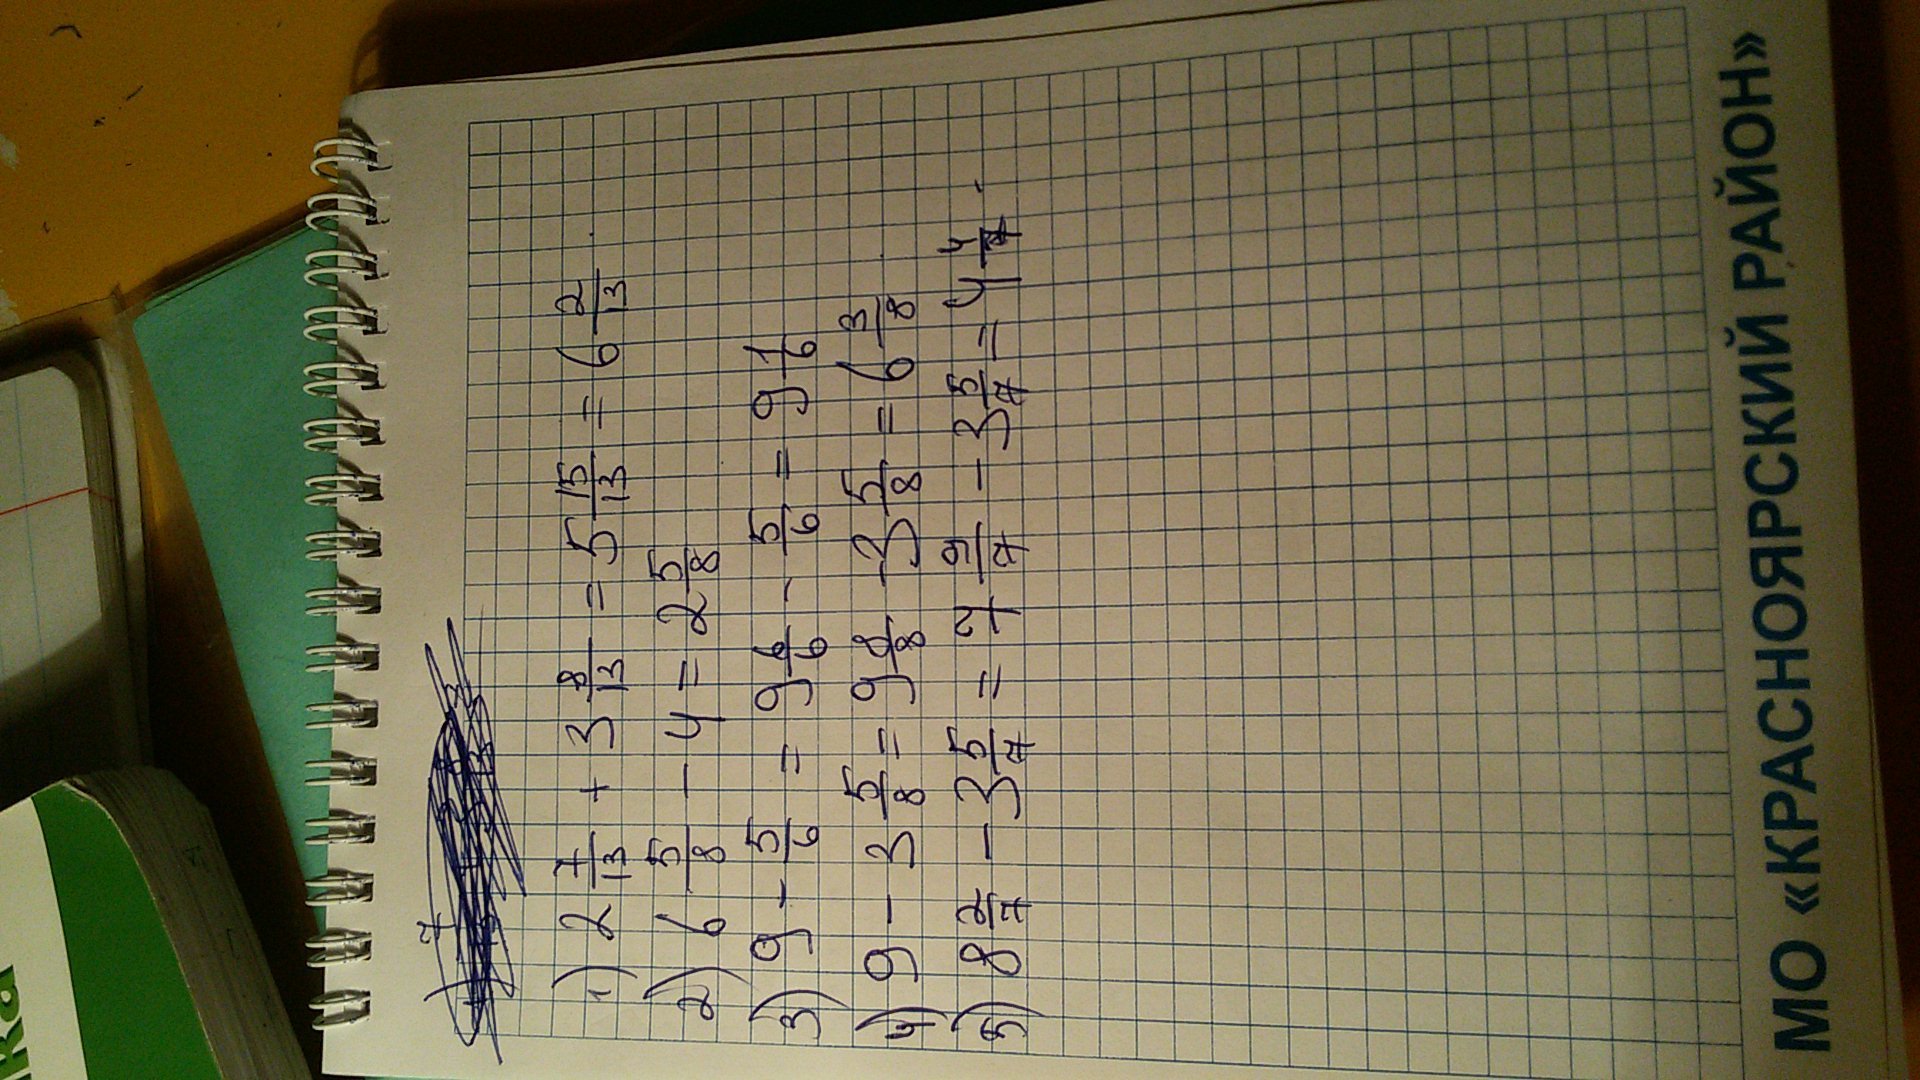 1) 2 7/13 + 3 8/13 = 5 15/13 = 6 2/13
2) 6 5/8 - 4 = 2 5/8
3) 9 - 5/6 = 9 6/6 - 5/6 = 9 1/6
4) 9 - 3 5/8 = 9 8/8 - 3 5/8 = 6 3/8
5) 8 2/7 - 3 5/7 = 7 9/7 - 3 5/7 = 4 4/7
МО «КРАСНОЯРСКИЙ РАЙОН»